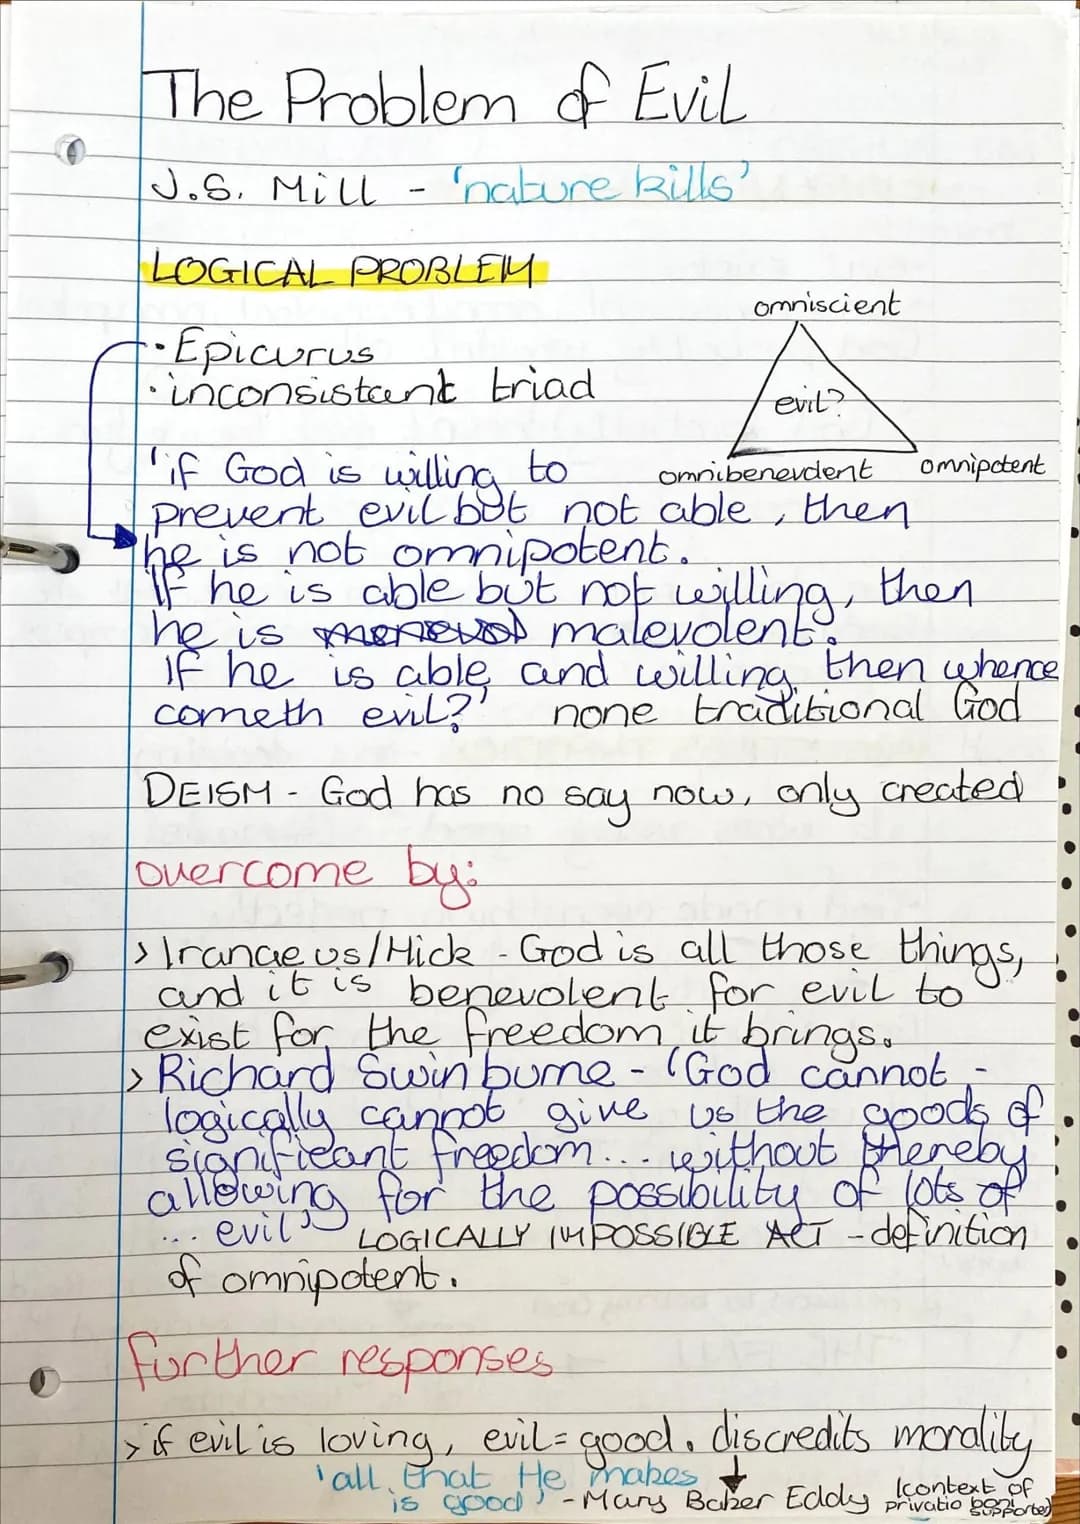 The Problem of Evil
J.S. Mill - 'nature kills'
LOGICAL PROBLEM
omniscient
• Epicurus
• inconsistent triad
evil?
omnibenevolent
omnipotent
'if God is willing to
prevent evil but not able, then
he is not omnipotent.
If he is able but not willing, then
he is malevolent.
If he is able and willing, then whence
cometh evil?' none traditional God
DEISM - God has no say now, only created
overcome by:
> Iranaeus/Hick - God is all those things,
and it is benevolent for evil to
exist for the freedom it brings.
> Richard Swinburne - 'God cannot -
logically cannot give us the goods of
significant freedom... without thereby
allowing for the possibility of lots of
... evil' LOGICALLY IMPOSSIBLE ACT - definition
of omnipotent.
further responses
> if evil is loving, evil = good. discredits morality
'all that He makes
is good' - Mary Baker Eddy (context of
privatio boni
supported)